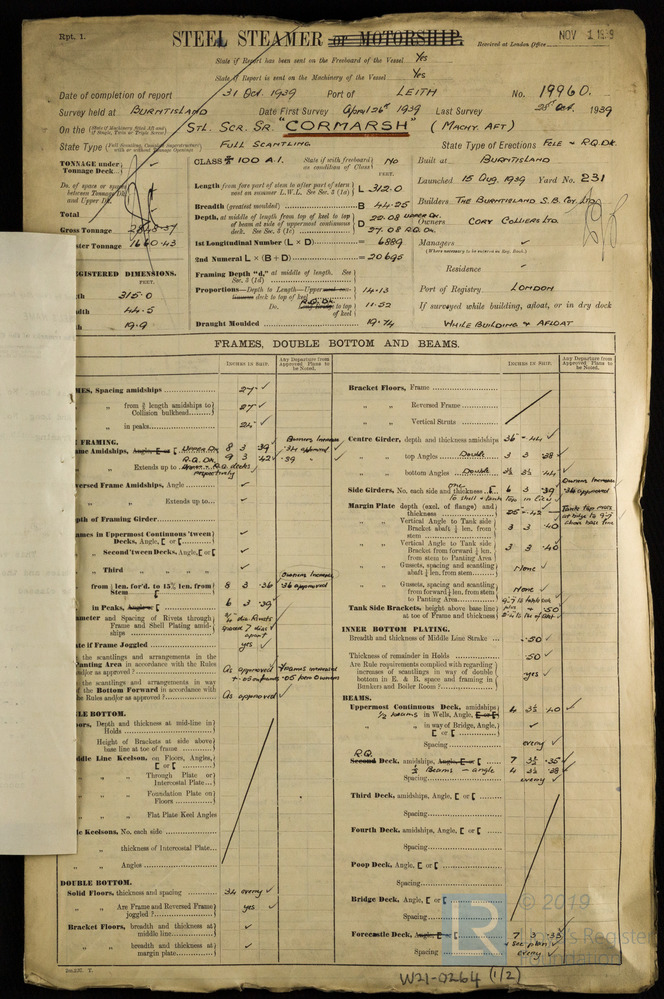 Rpt. 1.
STEEL STEAMER or MOTORSHIP.
Received at London Office
NOV 1
State if Report has been sent on the Freeboard of the Vessel Yes
State if Report is sent on the Machinery of the Vessel Yes
Date of completion of report 31 Oct. 1939 Port of LEITH No. 19960.
Survey held at BURNTISLAND Date First Survey April 26th 1939 Last Survey 25th Oct. 1939
On the STL. SCR. SR. "CORMARSH" (MACHY. AFT)
State Type FULL SCANTLING State Type of Erections FCLE + R.Q.DK.
TONNAGE under Tonnage Deck
CLASS 100 A.I. State if with freeboard as condition of Class No
Built at BURNTISLAND
Launched 15 Aug. 1939 Yard No. 231
Builders THE BURNTISLAND S.B. Coy. LTD.
Owners CORY COLLIERS LTD.
Managers ✓
Residence ✓
Port of Registry LONDON
If surveyed while building, afloat, or in dry dock
WHILE BUILDING + AFLOAT
Total
Gross Tonnage
1660.43
REGISTERED DIMENSIONS.
FEET.
315.0
44.5
19.9
FEET.
Length from fore part of stem to after part of stern post on summer L.W.L. See Sec. 3 (1a) L 312.0
Breadth (greatest moulded) B 44.25
Depth, at middle of length from top of keel to top of beam at side of uppermost continuous deck. See Sec. 3 (1c) D 22.08 UPPER DK.
27.08 R.Q.DK.
1st Longitudinal Number (L × D) = 6889
2nd Numeral L × (B + D) = 20695
Framing Depth "d," at middle of length. See Sec. 3 (1d)
Proportions—Depth to Length—Upper 14.13
deck to top of keel
Do. R.Q.Dk. to top of keel 11.52
Draught Moulded 19.74
FRAMES, DOUBLE BOTTOM AND BEAMS.
INCHES IN SHIP.
Any Departure from Approved Plans to be Noted.
INCHES IN SHIP.
Any Departure from Approved Plans to be Noted.
MES, Spacing amidships 27 ✓
" from ⅗ length amidships to Collision bulkhead 27 ✓
" in peaks 24 ✓
FRAMING.
ame Amidships, Angle, UPPER DK 8 3 .39
R.Q. DK. 9 3 .42 ✓ .39
" Extends up to
respectively
versed Frame Amidships, Angle ✓
" " Extends up to ✓
pth of Framing Girder ✓
ames in Uppermost Continuous 'tween Decks, Angle, [ or [ ✓
" Second 'tween Decks, Angle, [ or [ ✓
" Third " " " " ✓
Owners Increase
from ½ len. for'd. to 15% len. from Stem 8 3 .36 .36 approved
in Peaks, 6 3 .39 ✓
ameter and Spacing of Rivets through Frame and Shell Plating amidships
spaced 7 dias apart
ate if Frame Joggled yes ✓
the scantlings and arrangements in the Panting Area in accordance with the Rules and/or as approved? As approved
the scantlings and arrangements in way of the Bottom Forward in accordance with the Rules and/or as approved? As approved ✓
LE BOTTOM.
oors, Depth and thickness at mid-line in Holds
Height of Brackets at side above base line at toe of frame
ddle Line Keelson, on Floors, Angles, [ or [
" " Through Plate or Intercostal Plate
" " Foundation Plate on Floors
" " Flat Plate Keel Angles
de Keelsons, No. each side
" thickness of Intercostal Plate
" Angles
DOUBLE BOTTOM.
Solid Floors, thickness and spacing .34 every ✓
" " Are Frame and Reversed Frame joggled? yes ✓
Bracket Floors, breadth and thickness at middle line ✓
" " breadth and thickness at margin plate ✓
Bracket Floors, Frame
" " Reversed Frame
" " Vertical Struts
Centre Girder, depth and thickness amidships 36 - .44 ✓
" " top Angles Double 3 3 .38 ✓
" " bottom Angles Double 3½ 3½ .44
Side Girders, No. each side and thickness one 6 3 .39 .36 approved
Owners Increase
Margin Plate depth (excl. of flange) and thickness 25 - .42
" " Vertical Angle to Tank side Bracket abaft ¼ len. from stem 3 3 .40
" " Vertical Angle to Tank side Bracket from forward ¼ len. from stem to Panting Area 3 3 .40
" " Gussets, spacing and scantling abaft ¼ len. from stem None ✓
" " Gussets, spacing and scantling from forward ¼ len. from stem to Panting Area None ✓
Tank Side Brackets, height above base line at toe of Frame and thickness .50
INNER BOTTOM PLATING.
Breadth and thickness of Middle Line Strake .50 ✓
Thickness of remainder in Holds .50 ✓
Are Rule requirements complied with regarding increases of scantlings in way of double bottom in E. & B. space and framing in Bunkers and Boiler Room? yes ✓
BEAMS.
Uppermost Continuous Deck, amidships 4 3½ .40 ✓
½ beams in Wells, Angle,
" " in way of Bridge, Angle, [ or [ ✓
Spacing every ✓
R.Q.
Second Deck, amidships, 7 3½ .35
½ Beams - angle 4 3½ .38
Spacing every ✓
Third Deck, amidships, Angle, [ or [
Spacing
Fourth Deck, amidships, Angle, [ or [
Spacing
Poop Deck, Angle, [ or [
Spacing
Bridge Deck, Angle, [ or [
Spacing
Forecastle Deck, Angle, 7 3 .33
See plan
Spacing every ✓
W21-0264 (1/2)
LR
© 2019
Lloyd's Register
Foundation